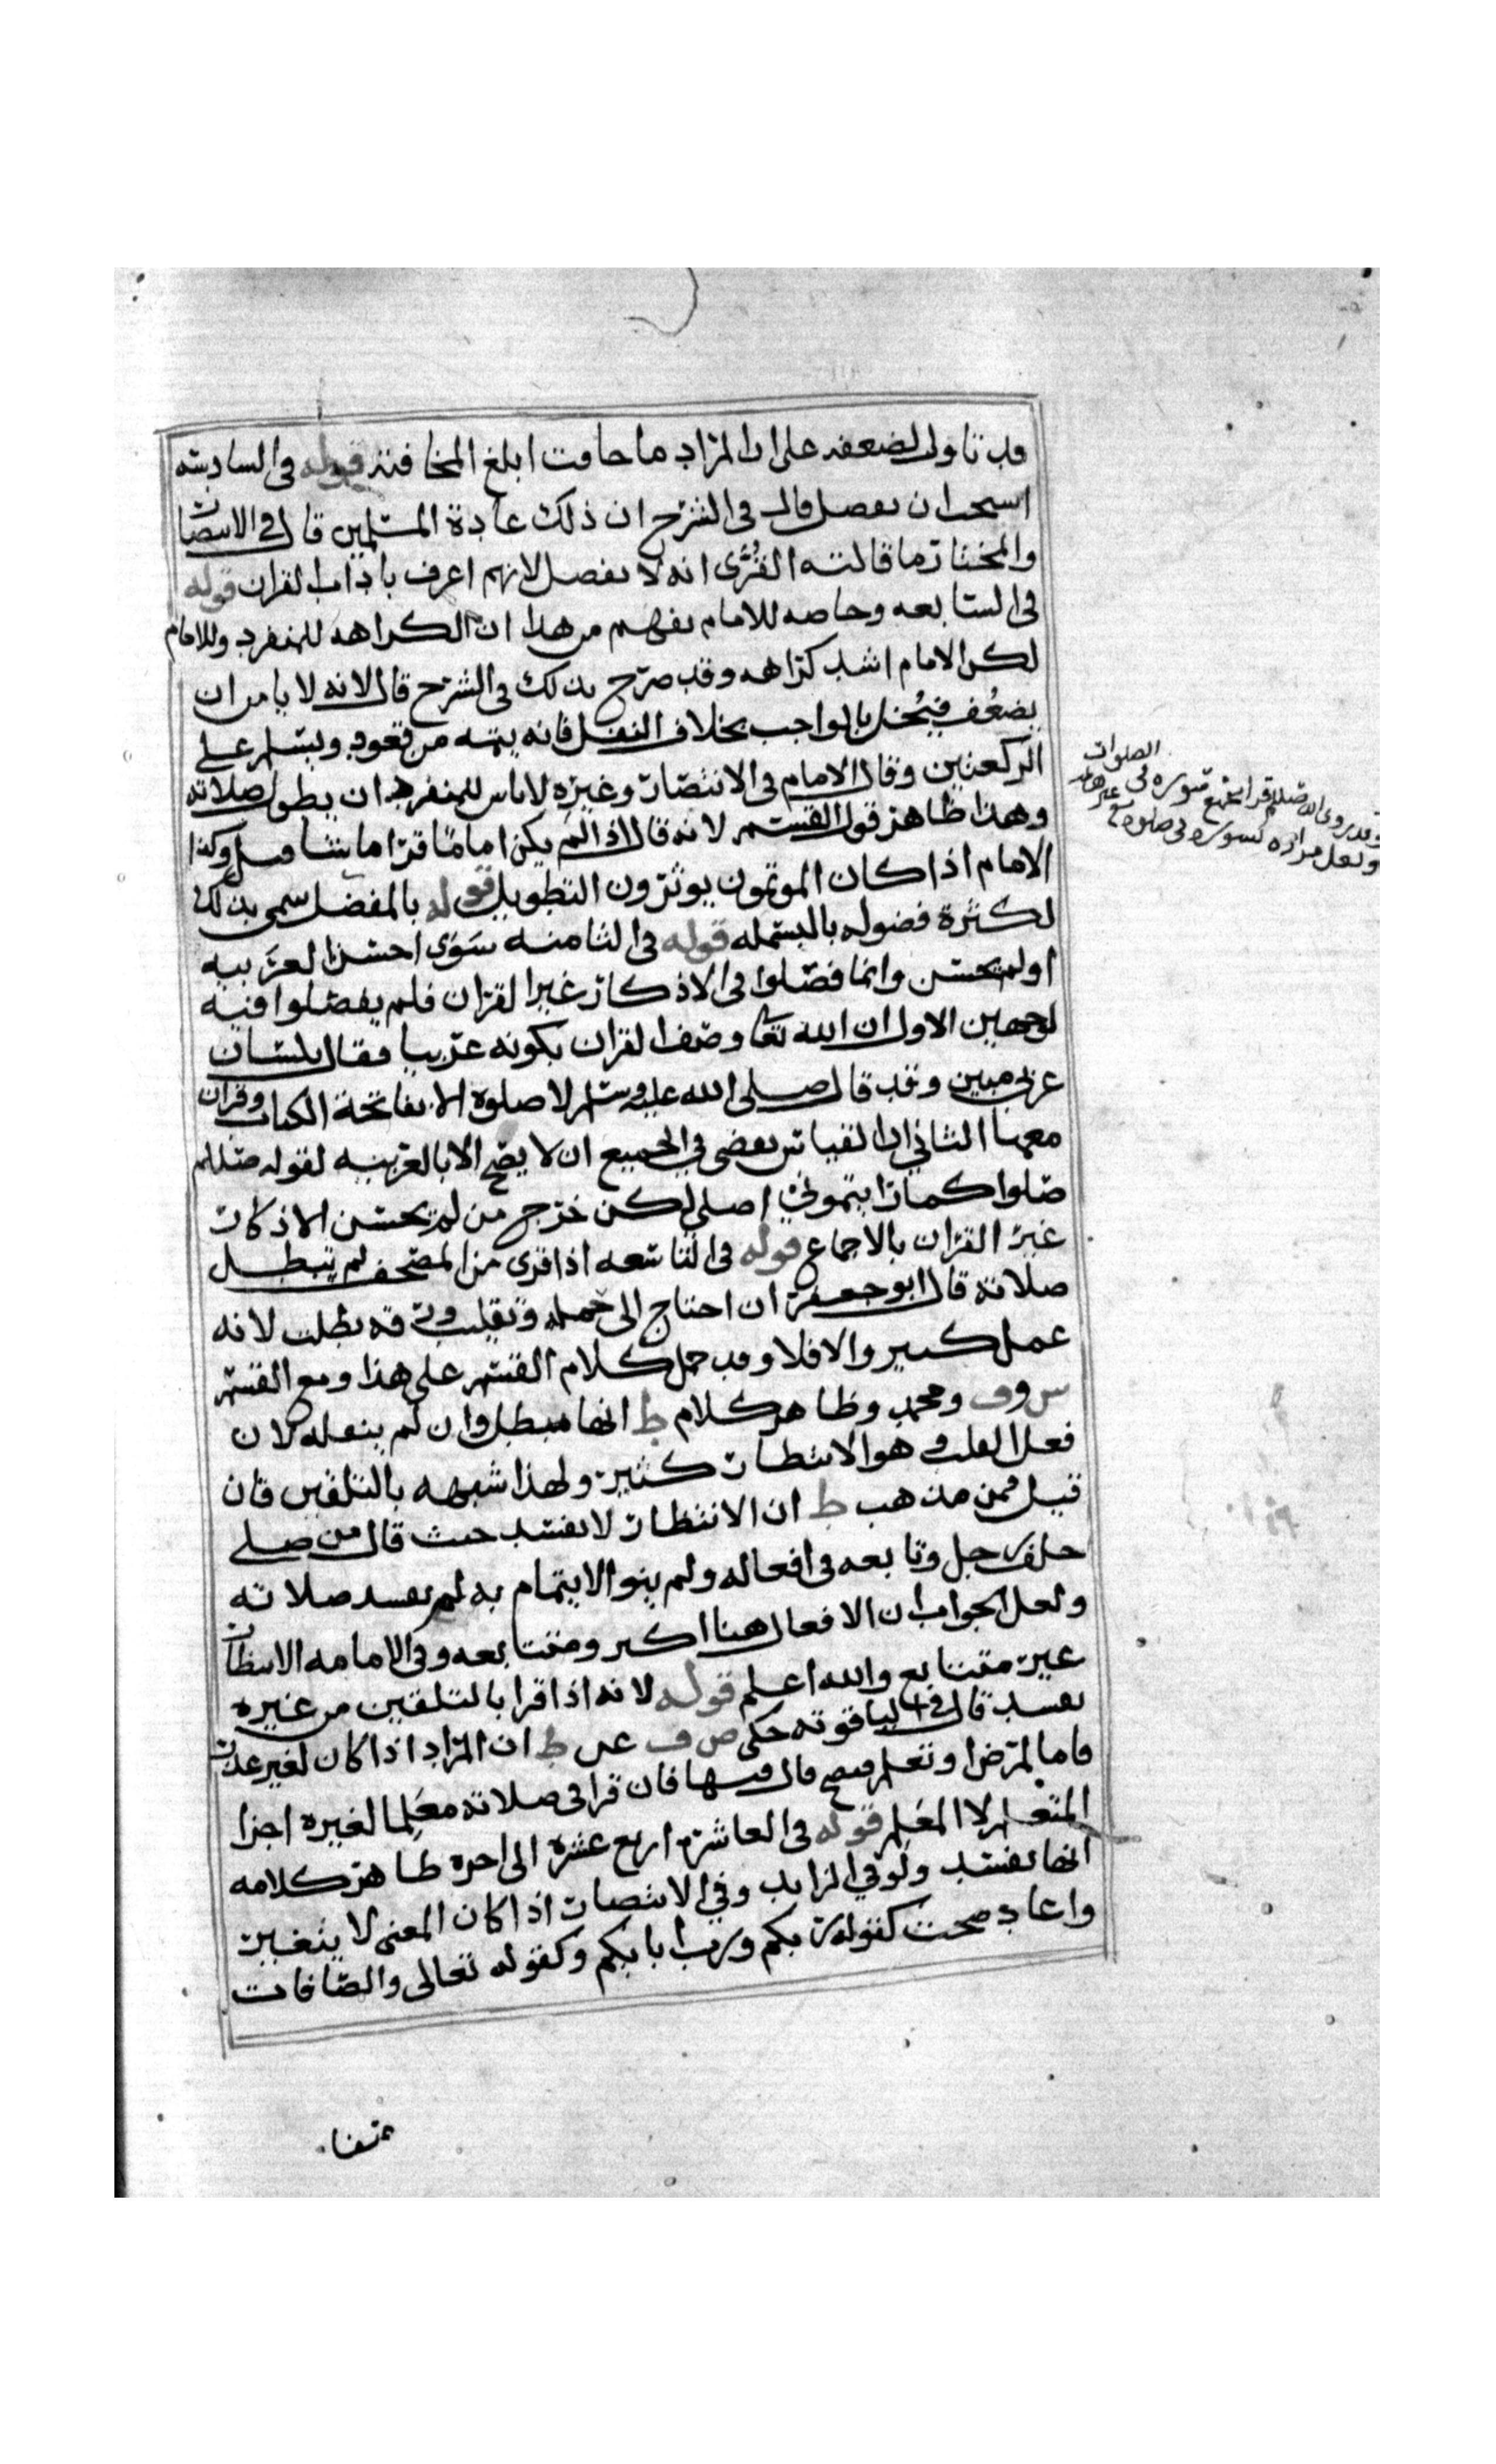 قد تاول لضعفه على ان المراد ما خافت ابلغ المخافتة قوله في السادسة
استحب ان يفصل قال في الشرح ان ذلك عادة المسلمين قال في الانتصار
والمختار ما قالته القرى انه لا يفصل لانهم اعرف باداب القران قوله
في السابعه وخاصه للامام يفهم من هذا ان الكراهه للمنفرد وللامام
لكن الامام اشد كراهه وقد صرح بذلك في الشرح قال لانه لا يامن ان
يضعف فيخل بالواجب بخلاف النفل فانه يتمه من قعود ويسلم على
الركعتين وقال الامام في الانتصار وغيره لا باس للمنفرد ان يطول صلاته
وهذا ظاهر قول القسم لانه قال اذا لم يكن اماما قرا ما يشا وكذا
الامام اذا كان الموتمون يوثرون التطويل قوله بالمفصل سمي بذلك
لكثرة فصوله بالبسمله قوله في الثامنه سوى احسن العربيه
او لم يحسن وانما فصلوا في الاذكار غير القران فلم يفصلوا فيه
لوجهين الاول ان الله تعا وصف القران بكونه عربيا فقال بلسان
عربي مبين وقد قال صلى الله عليه وسلم لا صلوة الا بفاتحة الكتاب وقران
معها الثاني ان القياس يقضي في الجميع ان لا يصح الا بالعربيه لقوله صللم
صلوا كما رايتموني اصلي لكن خرج من لم يحسن الاذكار
غير القران بالاجماع قوله في التاسعه اذا قرى من المصحف لم تبطل
صلاته قال ابو جعفر ان احتاج الى حمله وتقليب ورقه بطلت لانه
عمل كثير والا فلا وقد حمل كلام القسم على هذا ومع القسم
س وف ومحمد وظاهر كلام ط انها مبطل وان لم ينقله لان
فعل القلب وهو الانتظار كثير ولهذا شبهه بالتلقين فان
قيل فمن مذهب ط ان الانتظار لا يفسد حيث قال من صلى
خلف رجل وتابعه في افعاله ولم ينو الايتمام به لم يفسد صلاته
ولعل الجواب ان الافعال هنا اكثر ومتتابعه وفي الامامه الانتظار
غير متتابع والله اعلم قوله لانه اذا قرا بالتلقين من غيره
يفسد قال في الياقوته حكى ص ف عن ط ان المراد اذا كان لغير عذر
فاما لمرض او تعلم فيصح قال فيها فان قرا في صلاته معلما لغيره اجزا
المتعلم لا المعلم قوله في العاشرة اربع عشرة الى اخره ظاهر كلامه
انها تفسد ولو في الزايد وفي الانتصار اذا كان المعنى لا يتغير
واعاد صحت كقوله ربكم ورب ابايكم وكقوله تعالى والصافات
صفا
الصلوات
وقد روي انه صللم قرا بجمع سوره في
ولعل مراده كسوره في صلوة مع غيرها